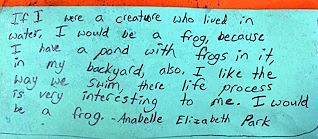 If I were a creature who lived in
water, I would be a frog, because
I have a pond with frogs in it,
in my backyard, also. I like the
way we swim, there life process
is very interesting to me. I would
be a frog. - Anabelle Elizabeth Park